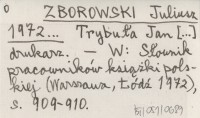 0 ZBOROWSKI Juliusz
1972... Trybuła Jan [...]
drukarz. – W: Słownik
pracowników książki pols-
kiej (Warszawa, Łódź 1972),
s. 909-910.